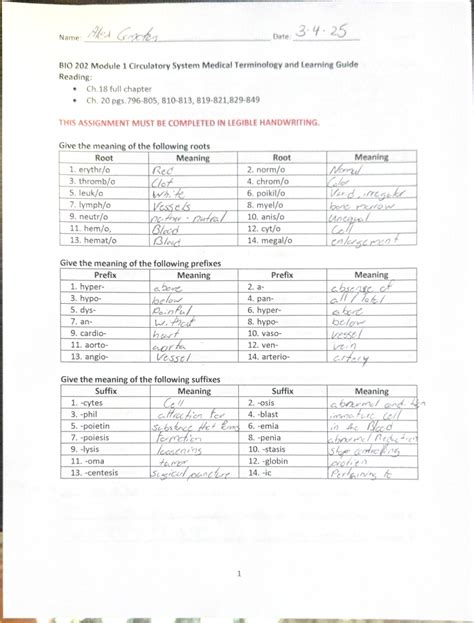 Name: Alex Date: 3-4-25
BIO 202 Module 1 Circulatory System Medical Terminology and Learning Guide
Reading:
• Ch.18 full chapter
• Ch. 20 pgs.796-805, 810-813, 819-821,829-849
THIS ASSIGNMENT MUST BE COMPLETED IN LEGIBLE HANDWRITING.
Give the meaning of the following roots
Root Meaning Root Meaning
1. erythr/o Red 2. norm/o Normal
3. thromb/o Clot 4. chrom/o Color
5. leuk/o White 6. poikil/o Varied, irregular
7. lymph/o Vessels 8. myel/o bone marrow
9. neutr/o neither - nutral 10. anis/o Unequal
11. hem/o, Blood 12. cyt/o Cell
13. hemat/o Blood 14. megal/o enlargement
Give the meaning of the following prefixes
Prefix Meaning Prefix Meaning
1. hyper- above 2. a- absense of
3. hypo- below 4. pan- all / total
5. dys- Painful 6. hyper- above
7. an- without 8. hypo- below
9. cardio- hart 10. vaso- vessel
11. aorto- aorta 12. ven- vein
13. angio- Vessel 14. arterio- artery
Give the meaning of the following suffixes
Suffix Meaning Suffix Meaning
1. -cytes Cell 2. -osis abnormal condition
3. -phil attraction for 4. -blast immature cell
5. -poietin Substance that 6. -emia in the Blood
7. -poiesis formation 8. -penia abnormal Reduction
9. -lysis loosening 10. -stasis Stop controlling
11. -oma tumor 12. -globin protien
13. -centesis surgical puncture 14. -ic Pertaining to
1